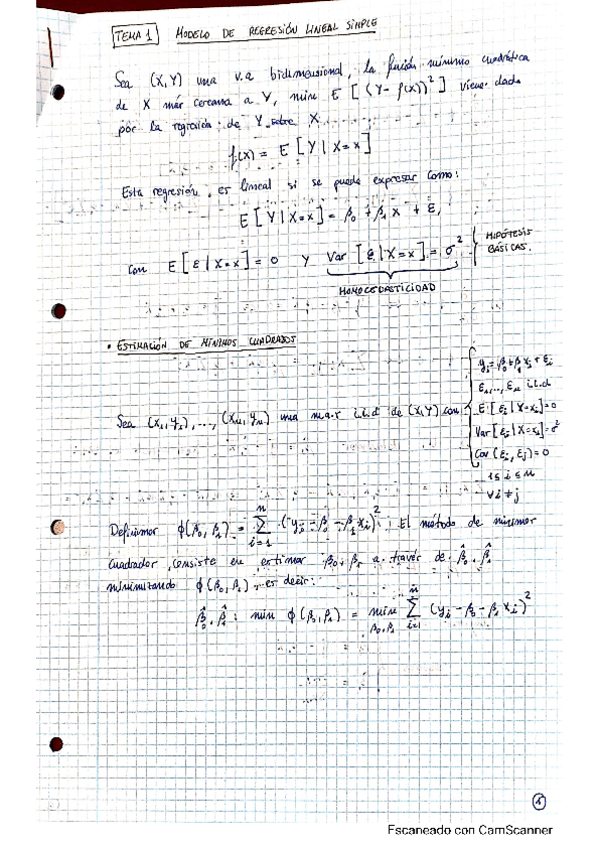 TEMA 1 MODELO DE REGRESIÓN LINEAL SIMPLE
Sea (X,Y) una v.a bidimensional, la función mínimo cuadrática
de X más cercana a Y, min E [ (Y - f(x))² ] viene dada
por la regresión de Y sobre X
f(x) = E [ Y | X=x ]
Esta regresión, es lineal si se puede expresar como:
E [ Y | X=x ] = β₀ + β₁ x + ε,
con E [ ε | X=x ] = 0 y Var [ ε | X=x ] = σ² HIPÓTESIS BÁSICAS.
HOMOCEDASTICIDAD
• ESTIMACIÓN DE MÍNIMOS CUADRADOS
Sea (x₁,y₁), ..., (xₙ,yₙ) una m.a.s i.i.d de (X,Y) con
yᵢ = β₀ + β₁ xᵢ + εᵢ
ε₁, ..., εₙ i.i.d
E [ εᵢ | X=xᵢ ] = 0
Var [ εᵢ | X=xᵢ ] = σ²
Cov (εᵢ, εⱼ) = 0
1 ≤ i ≤ n
∀ i ≠ j
Definimos ϕ(β₀, β₁) = ∑ᵢ₌₁ⁿ (yᵢ - β₀ - β₁ xᵢ)². El método de mínimos
cuadrados, consiste en estimar β₀, β₁ a través de β̂₀, β̂₁
minimizando ϕ(β₀, β₁), es decir:
β̂₀, β̂₁ : min ϕ(β₀, β₁) = min β₀,β₁ ∑ᵢ₌₁ⁿ (yᵢ - β₀ - β₁ xᵢ)²
1
Escaneado con CamScanner